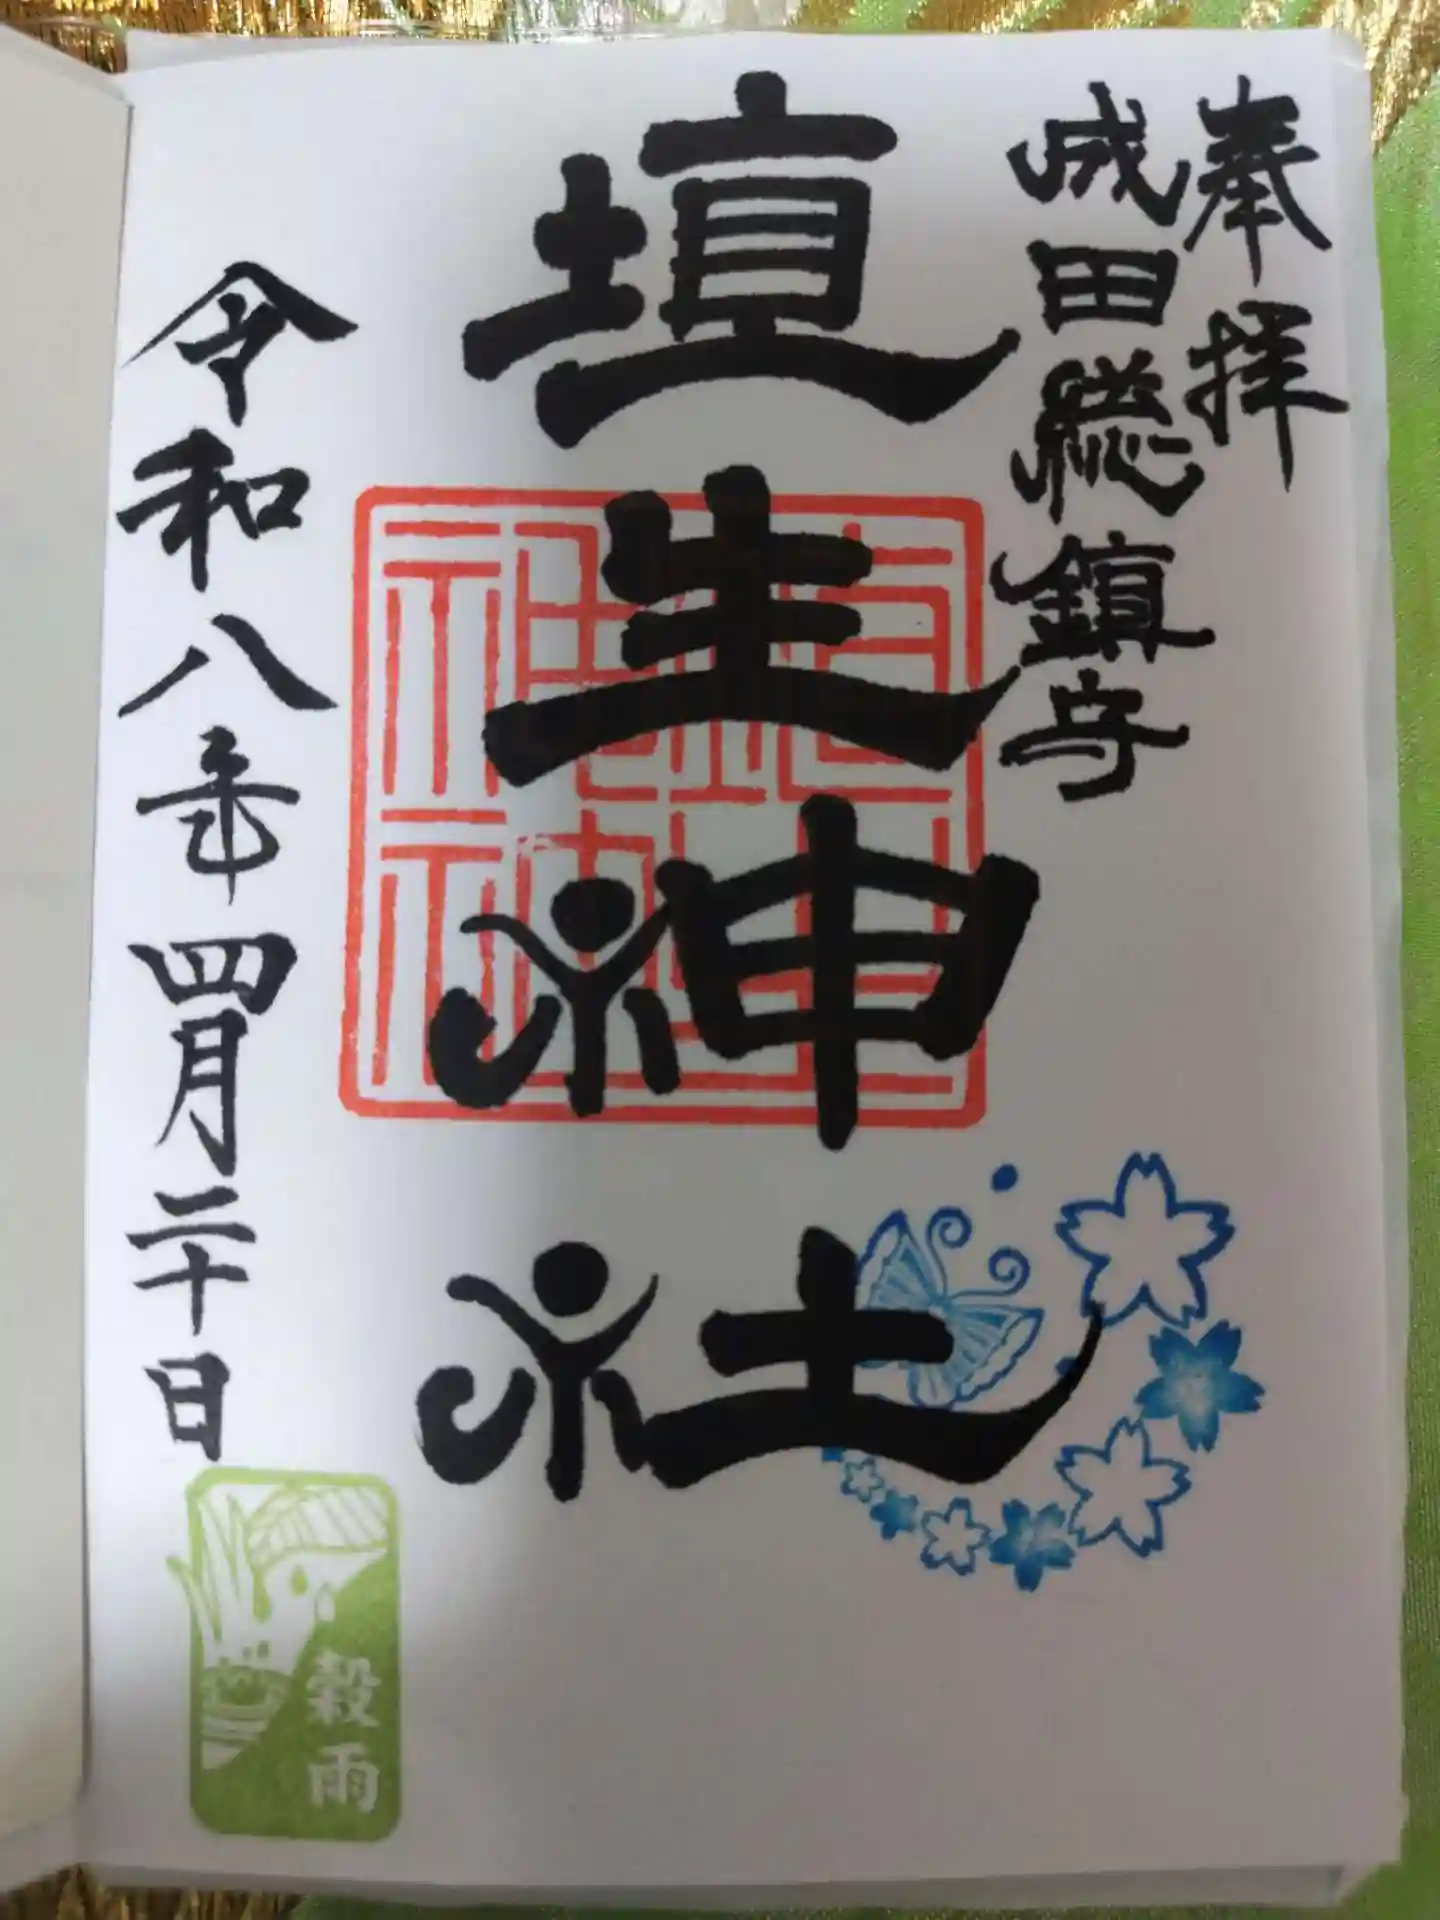 奉拝
成田総鎮守
埴生神社
令和八年四月二十日
穀雨